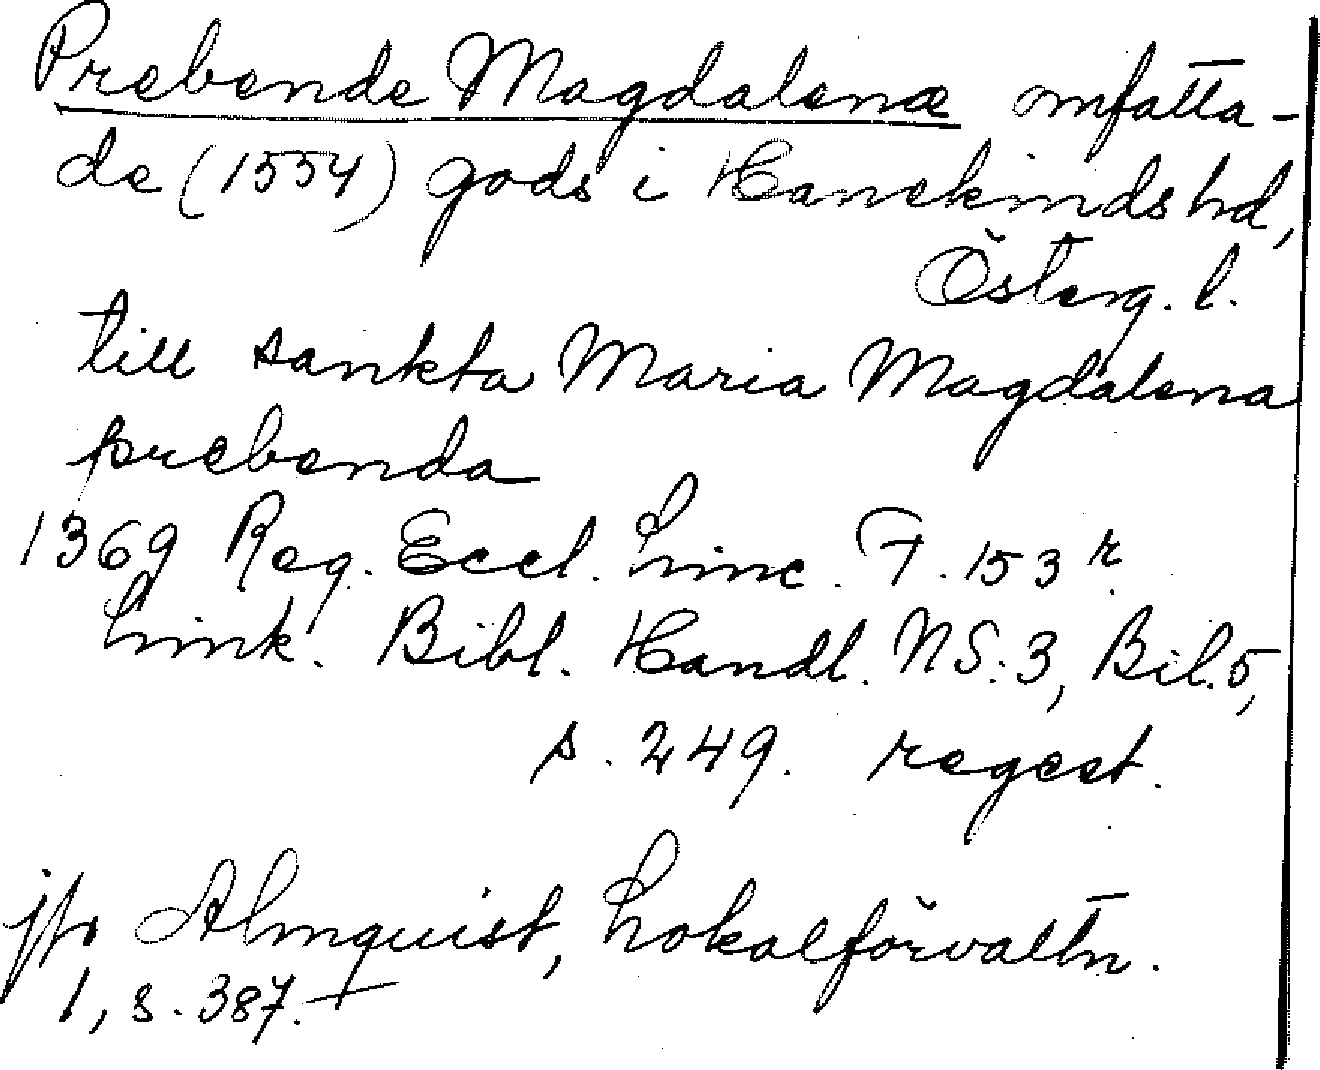 Prebende Magdalenæ omfatta-
de (1554) gods i Hanekinds hd,
Österg. l.
till sankta Maria Magdalena
prebenda
1369 Reg. Eccl. Linc. F. 153 r.
Link. Bibl. Handl. NS:3, Bil. 5,
s. 249. regest.
jfr Almquist, Lokalförvaltn.
1, s. 387.